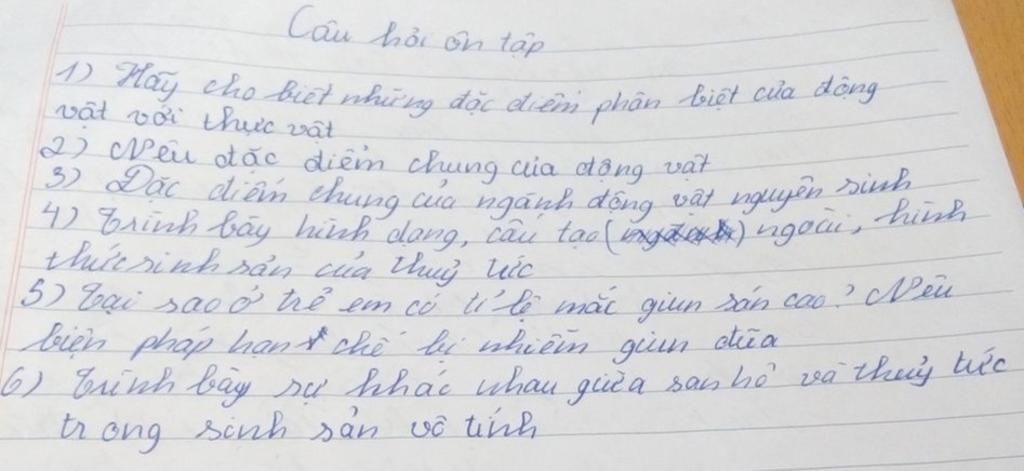 Câu hỏi ôn tập
1) Hãy cho biết những đặc điểm phân biệt của động
vật với thực vật
2) Nêu đặc điểm chung của động vật
3) Đặc điểm chung của ngành động vật nguyên sinh
4) Trình bày hình dạng, cấu tạo () ngoài, hình
thức sinh sản của thuỷ tức
5) Tại sao ở trẻ em có tỉ lệ mắc giun sán cao? Nêu
biện pháp hạn chế bị nhiễm giun đũa
6) Trình bày sự khác nhau giữa san hô và thuỷ tức
trong sinh sản vô tính